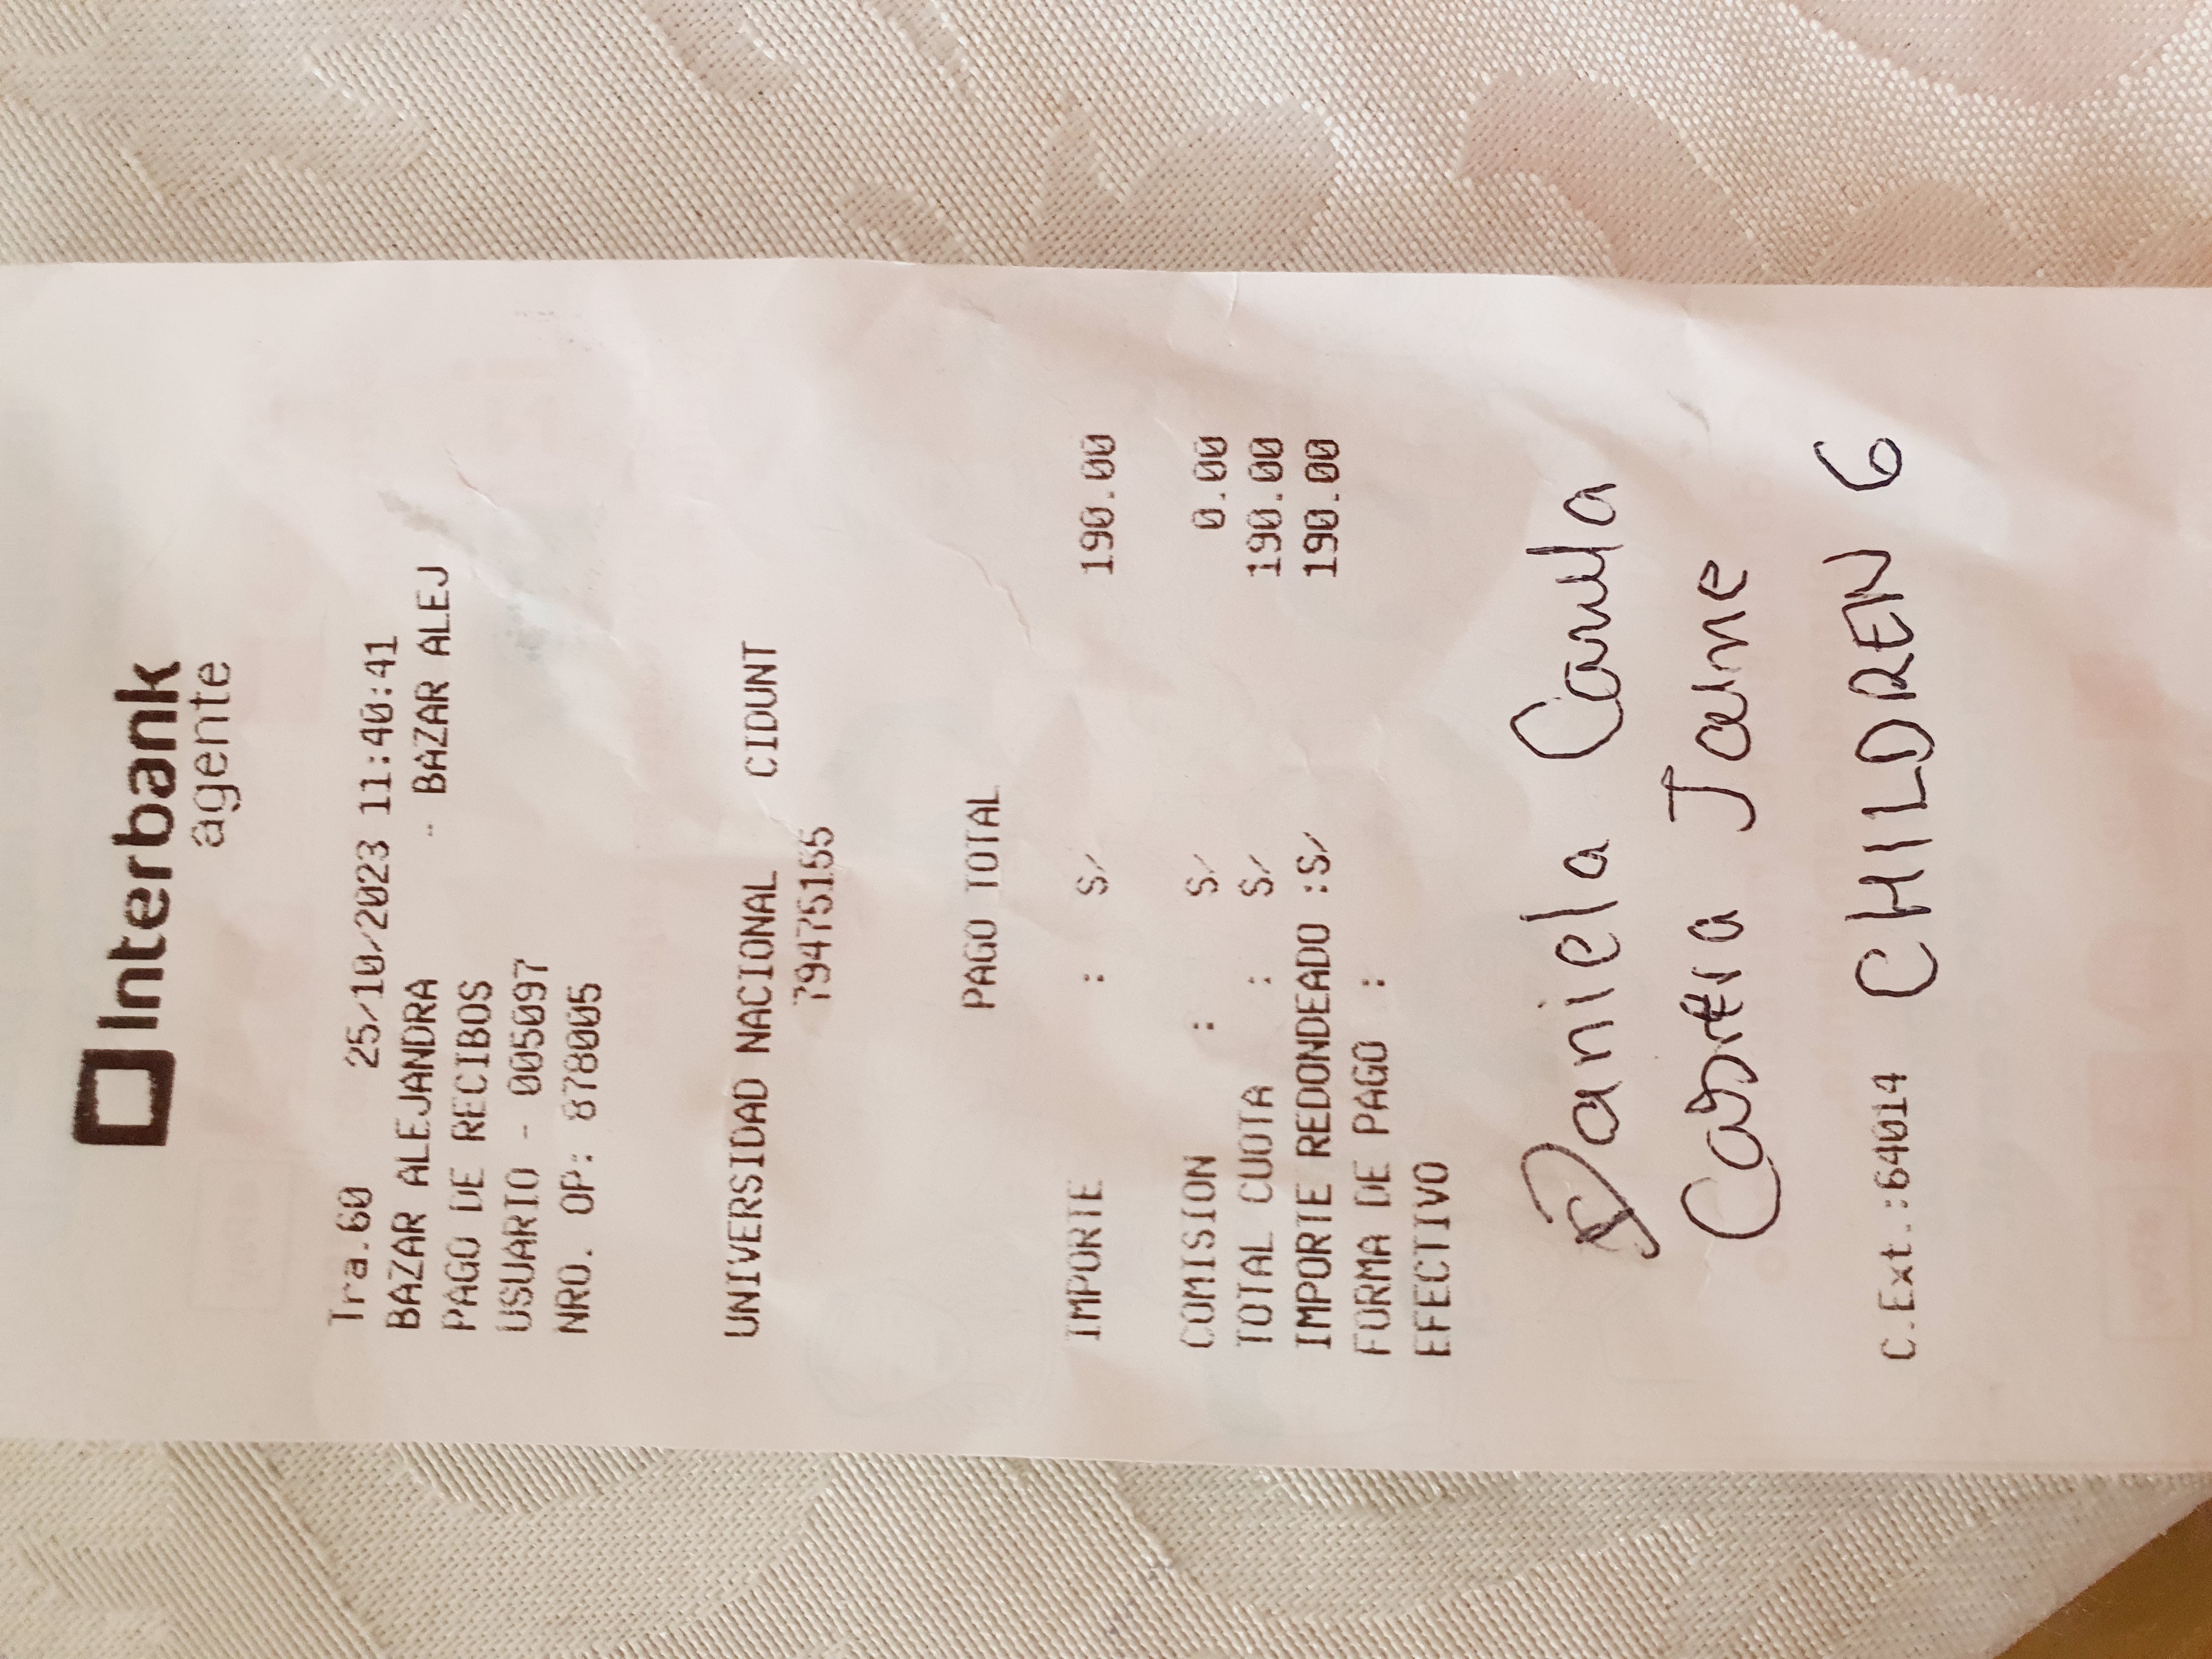 Interbank
agente
Tra.60 25/10/2023 11:40:41
BAZAR ALEJANDRA - BAZAR ALEJ
PAGO DE RECIBOS
USUARIO - 005097
NRO. OP: 878005
UNIVERSIDAD NACIONAL CIDUNT
79475155
PAGO TOTAL
IMPORTE : S/ 190.00
COMISION : S/ 0.00
TOTAL CUOTA : S/ 190.00
IMPORTE REDONDEADO :S/ 190.00
FORMA DE PAGO :
EFECTIVO
Daniela Camila
Jaime
C.Ext.:64014 CHILDREN 6